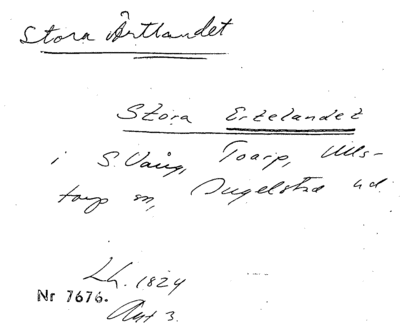 Stora Ärtlandet
Stora Ertelandet
i S. Vång, Toarp, Ulls-
torp sn, Ingelstad hd.
Lh. 1824
Nr 7676.
Akt 3.